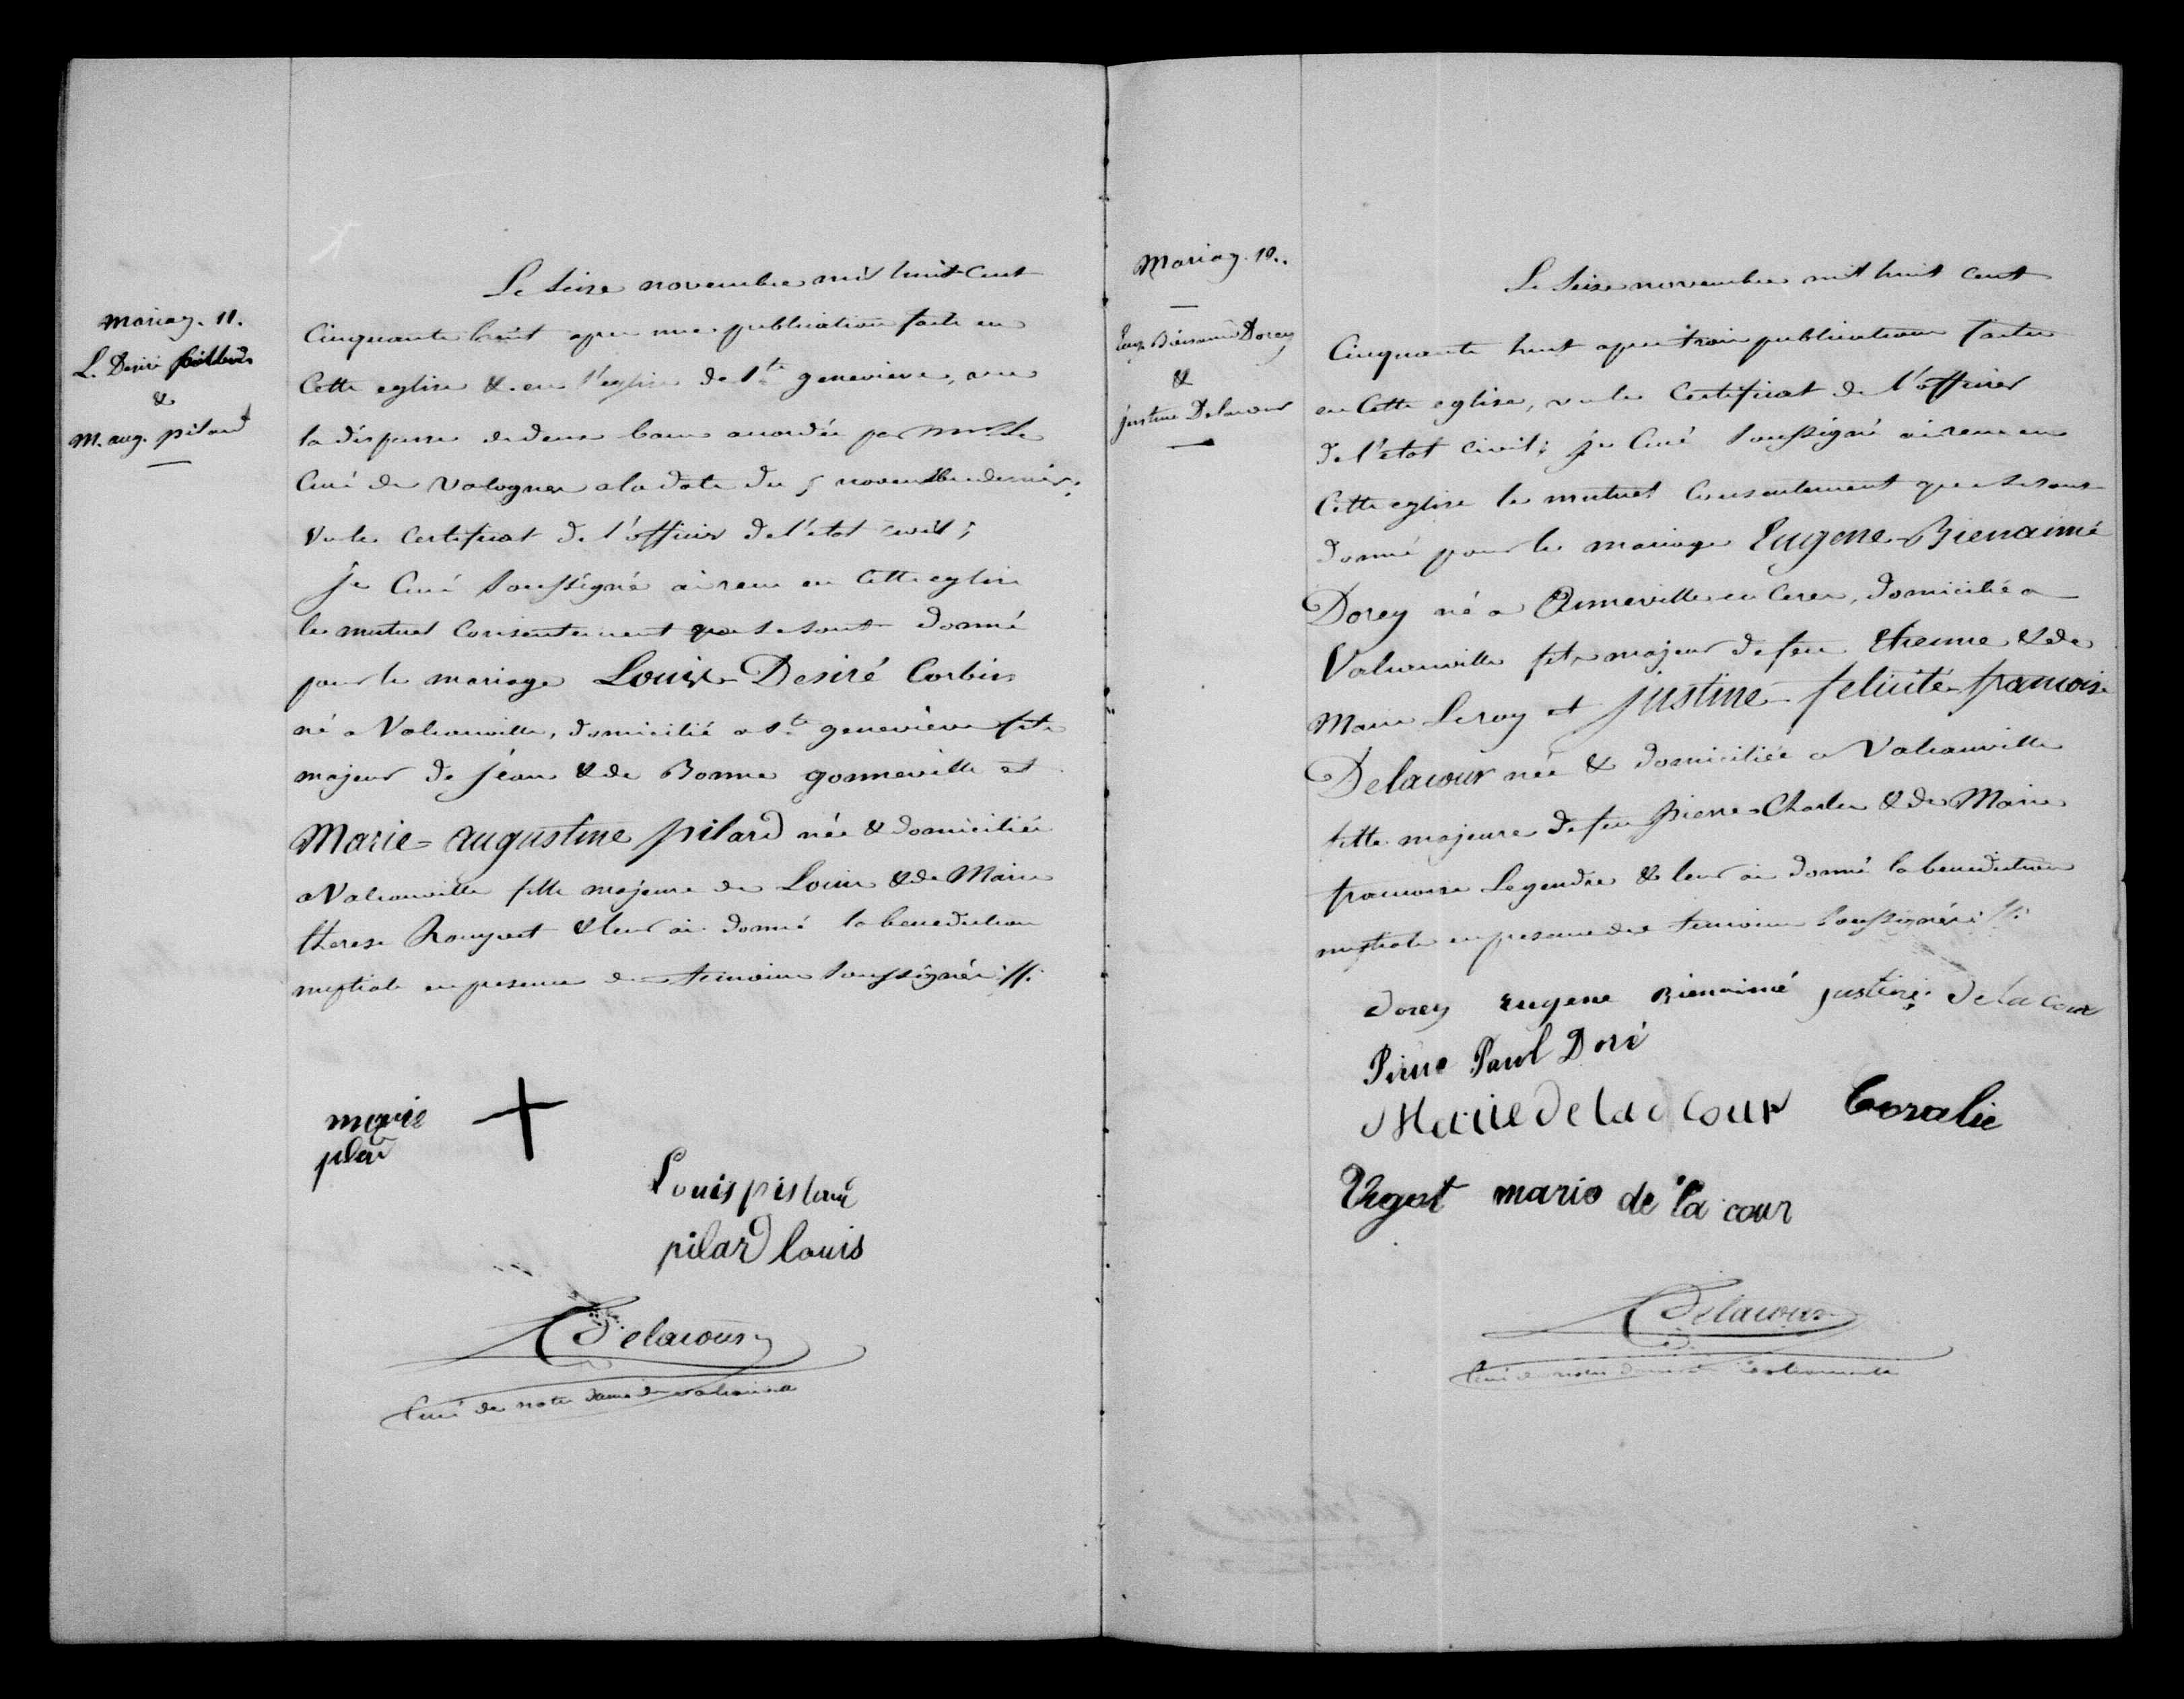 Mariag. 11.
L. Desiré
&
M. aug. pilard
Le Seize novembre mil huit cent
Cinquante huit apres une publication faite en
Cette eglise & en l'eglise de Ste genevieve, vu
la dispense de deux bans accordée par Mr Le
Curé de Valognes a la date du 5 novembre dernier;
Vu le Certificat de l'officier de l'état civil;
Je Curé Soussigné ai recu en Cette eglise
le mutuel Consentement que se sont donné
pour le mariage Louis-Desiré Corbin
né a Valcanville, domicilié a Ste genevieve fils
majeur de Jean & de Bonne gonneville et
Marie-augustine pilard née & domiciliée
a Valcanville fille majeure de Louis & de Marie
therese Rouxel & leur ai donné la benediction
nuptiale en presence des temoins Soussignés ://:
marie
Louis pislard
pilard louis
Delacour
Curé de notre dame de valcanville
Mariag. 10.
Eug. Bienaimé Dorey
&
justine Delacour
Le Seize novembre mil huit cent
Cinquante huit apres trois publications faites
en Cette eglise, vu le Certificat de l'officier
de l'état civil; je Curé Soussigné ai recu en
Cette eglise le mutuel Consentement que se sont
donné pour le mariage Eugene-Bienaimé
Dorey né a Anneville en Cerer, domicilié a
Valcanville fils majeur de feu Etienne & de
Marie Leroy et justine-felicité-francoise
Delacour née & domiciliée a Valcanville
fille majeure de feu Pierre-Charles & de Marie
francoise Legendre & leur ai donné la benediction
nuptiale en presence des temoins Soussignés ://:
dorey Eugene Bienaimé justine Delacour
Pierre Paul Doré
Marie Delacour Coralie
Vigot marie de la cour
Delacour
Curé de notre dame de Valcanville